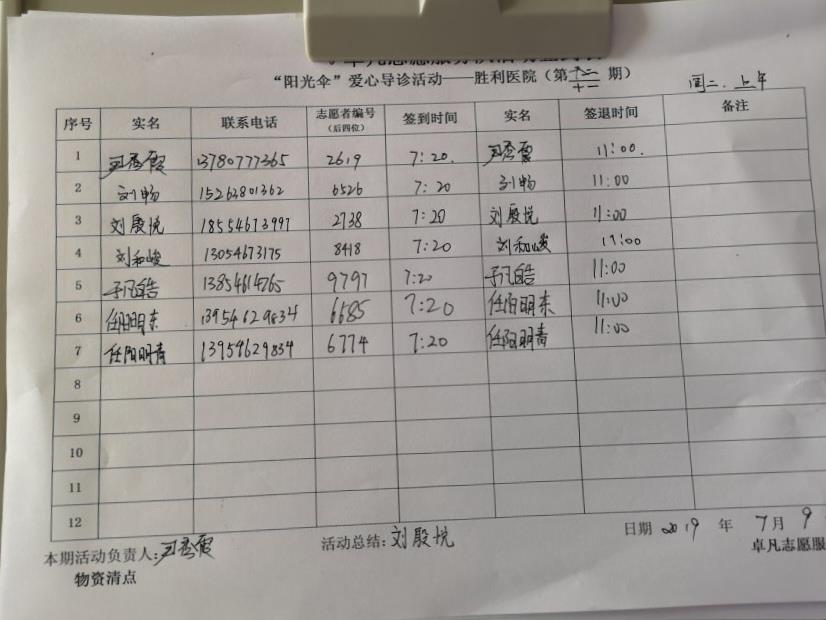 “阳光伞”爱心导诊活动——胜利医院（第十一期）
周二．上午
序号 实名 联系电话 志愿者编号（后四位） 签到时间 实名 签退时间 备注
1 13780777365 2619 7:20. 11:00.
2 刘畅 15263801362 6526 7:20 刘畅 11:00
3 刘殷悦 18554673997 2738 7:20 刘殷悦 11:00
4 刘和峻 13054673175 8418 7:20 刘和峻 11:00
5 13854614765 9797 7:20 11:00
6 任阳明东 13954629834 6685 7:20 任阳明东 11:00
7 任阳明青 13954629834 6774 7:20 任阳明青 11:00
8
9
10
11
12
本期活动负责人: 活动总结: 刘殷悦 日期 2019 年 7月 9
物资清点 卓凡志愿服